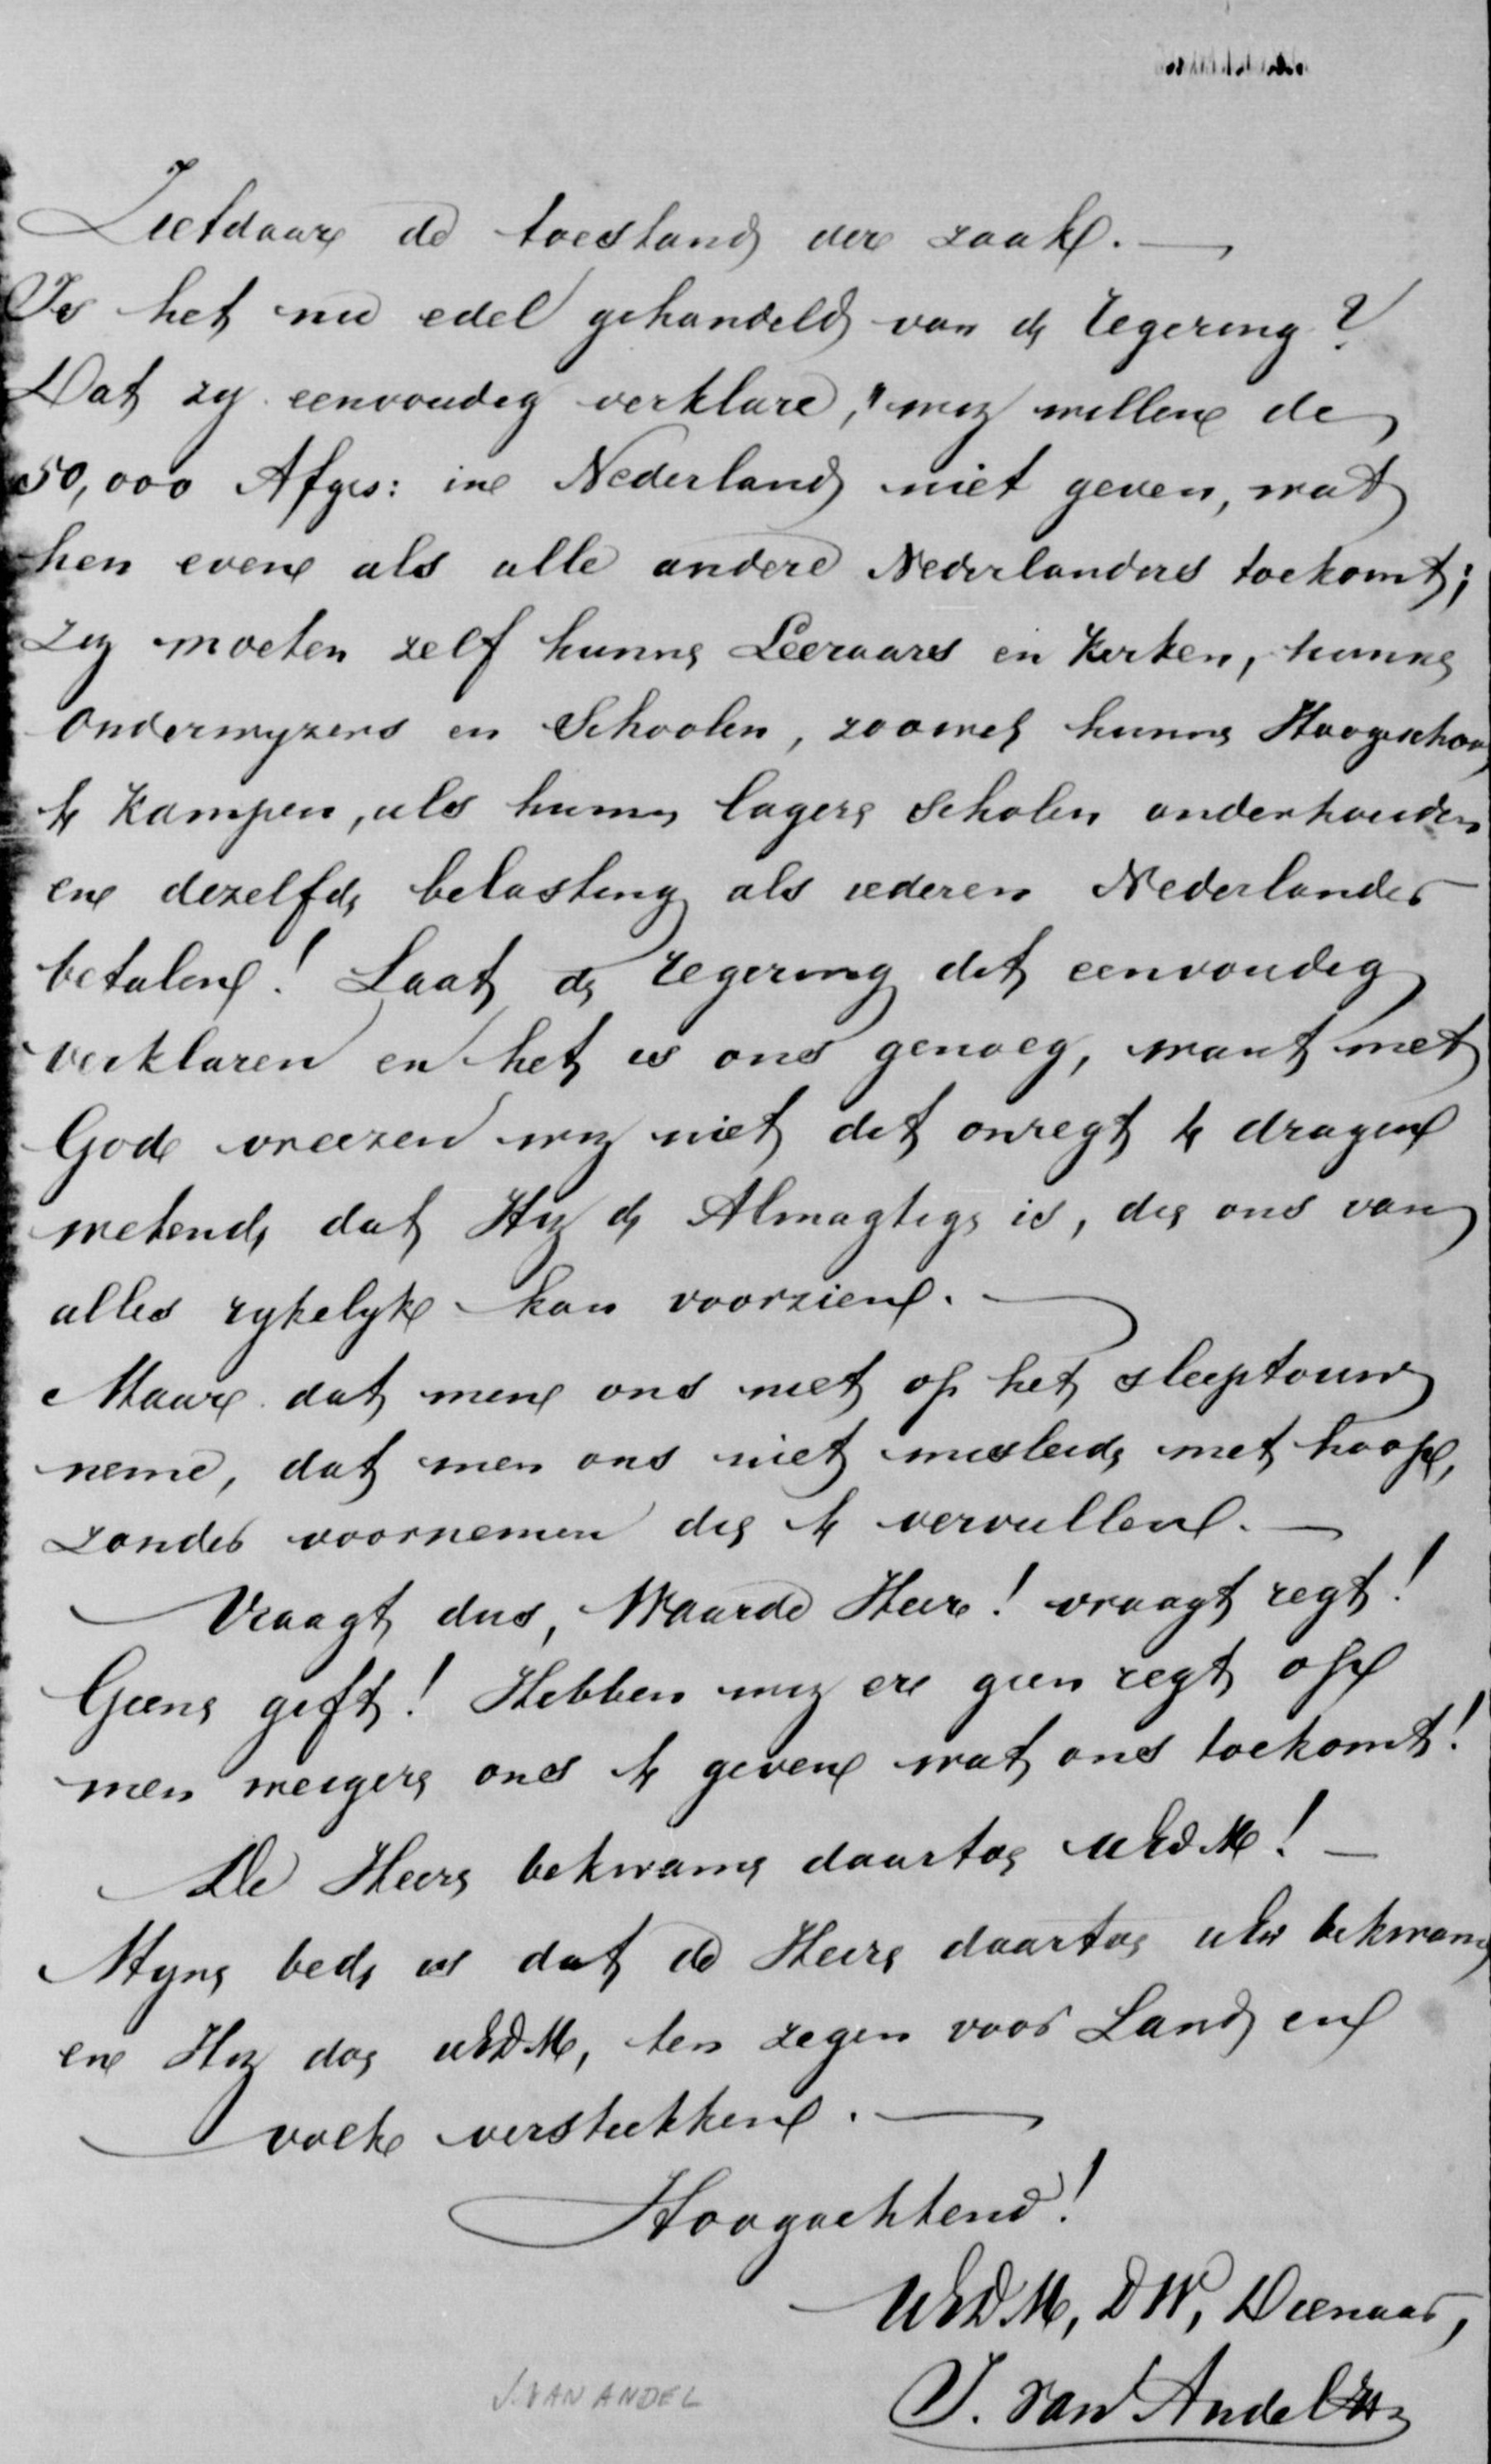 Zietdaar de toestand der zaak. —
Is het nu edel gehandeld van de regering?
Dat zy eenvoudig verklare, "wij willen de
50,000 Afges: in Nederland niet geven, wat
hen even als alle andere Nederlanders toekomt;
zy moeten zelf hunne Leeraars en Kerken, hunne
Onderwyzers en Schoolen, zoowel hunne Hoogeschool
te Kampen, als hunne lagere Scholen onderhouden
en dezelfde belasting als iederen Nederlander
betalen! Laat de regering dit eenvoudig
verklaren en het is ons genoeg, want met
God vreezen wij niet dit onregt te dragen
wetende dat Hij de Almagtige is, die ons van
alles rykelyk kan voorzien. —
Maar dat men ons niet op het sleeptouw
neme, dat men ons niet misleide met hoop,
zonder voornemen die te vervullen. —
Vraagt dus, Waarde Heer! vraagt regt!
Geene gift! Hebben wij er geen regt op
men weigere ons te geven wat ons toekomt!
De Heere bekwame daartoe UEdM! —
Myne bede is dat de Heere daartoe uEd bekwame
en Hij doe UEDM, ten zegen voor Land en
volk verstrekken. —
Hoogachtend!
UEDM, DW, Dienaar,
J. van Andel
J. VAN ANDEL